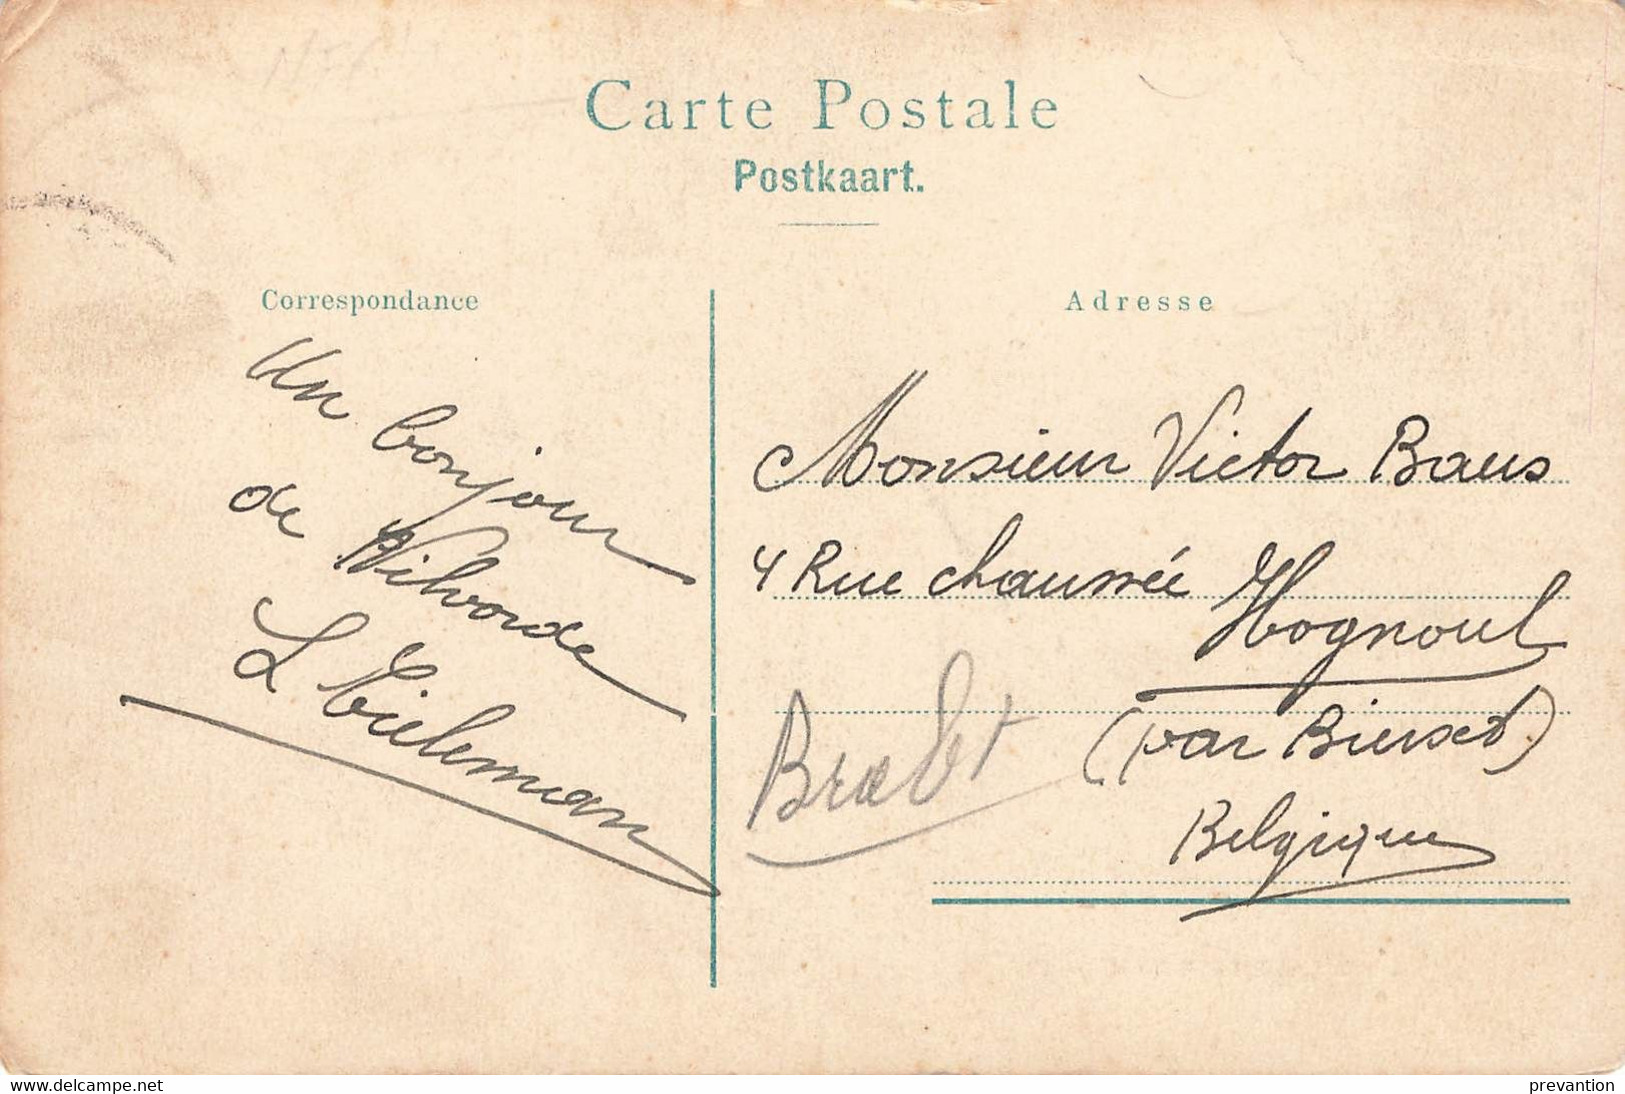 Carte Postale
Postkaart.
Correspondance
Un bonjour
de Vilvorde
L Tieleman
Adresse
Monsieur Victor Baus
4 Rue chaussée
Hognoul
(par Bierset)
Belgique
Brabt
www.delcampe.net
prevantion